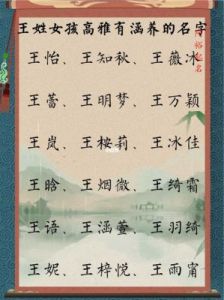 王姓女孩高雅有涵养的名字
王怡、王知秋、王薇冰
王蕾、王明梦、王万颖
王岚、王桉莉、王冰佳
王晗、王烟微、王绮霜
王语、王涵萱、王羽绮
王妮、王梓悦、王雨甯